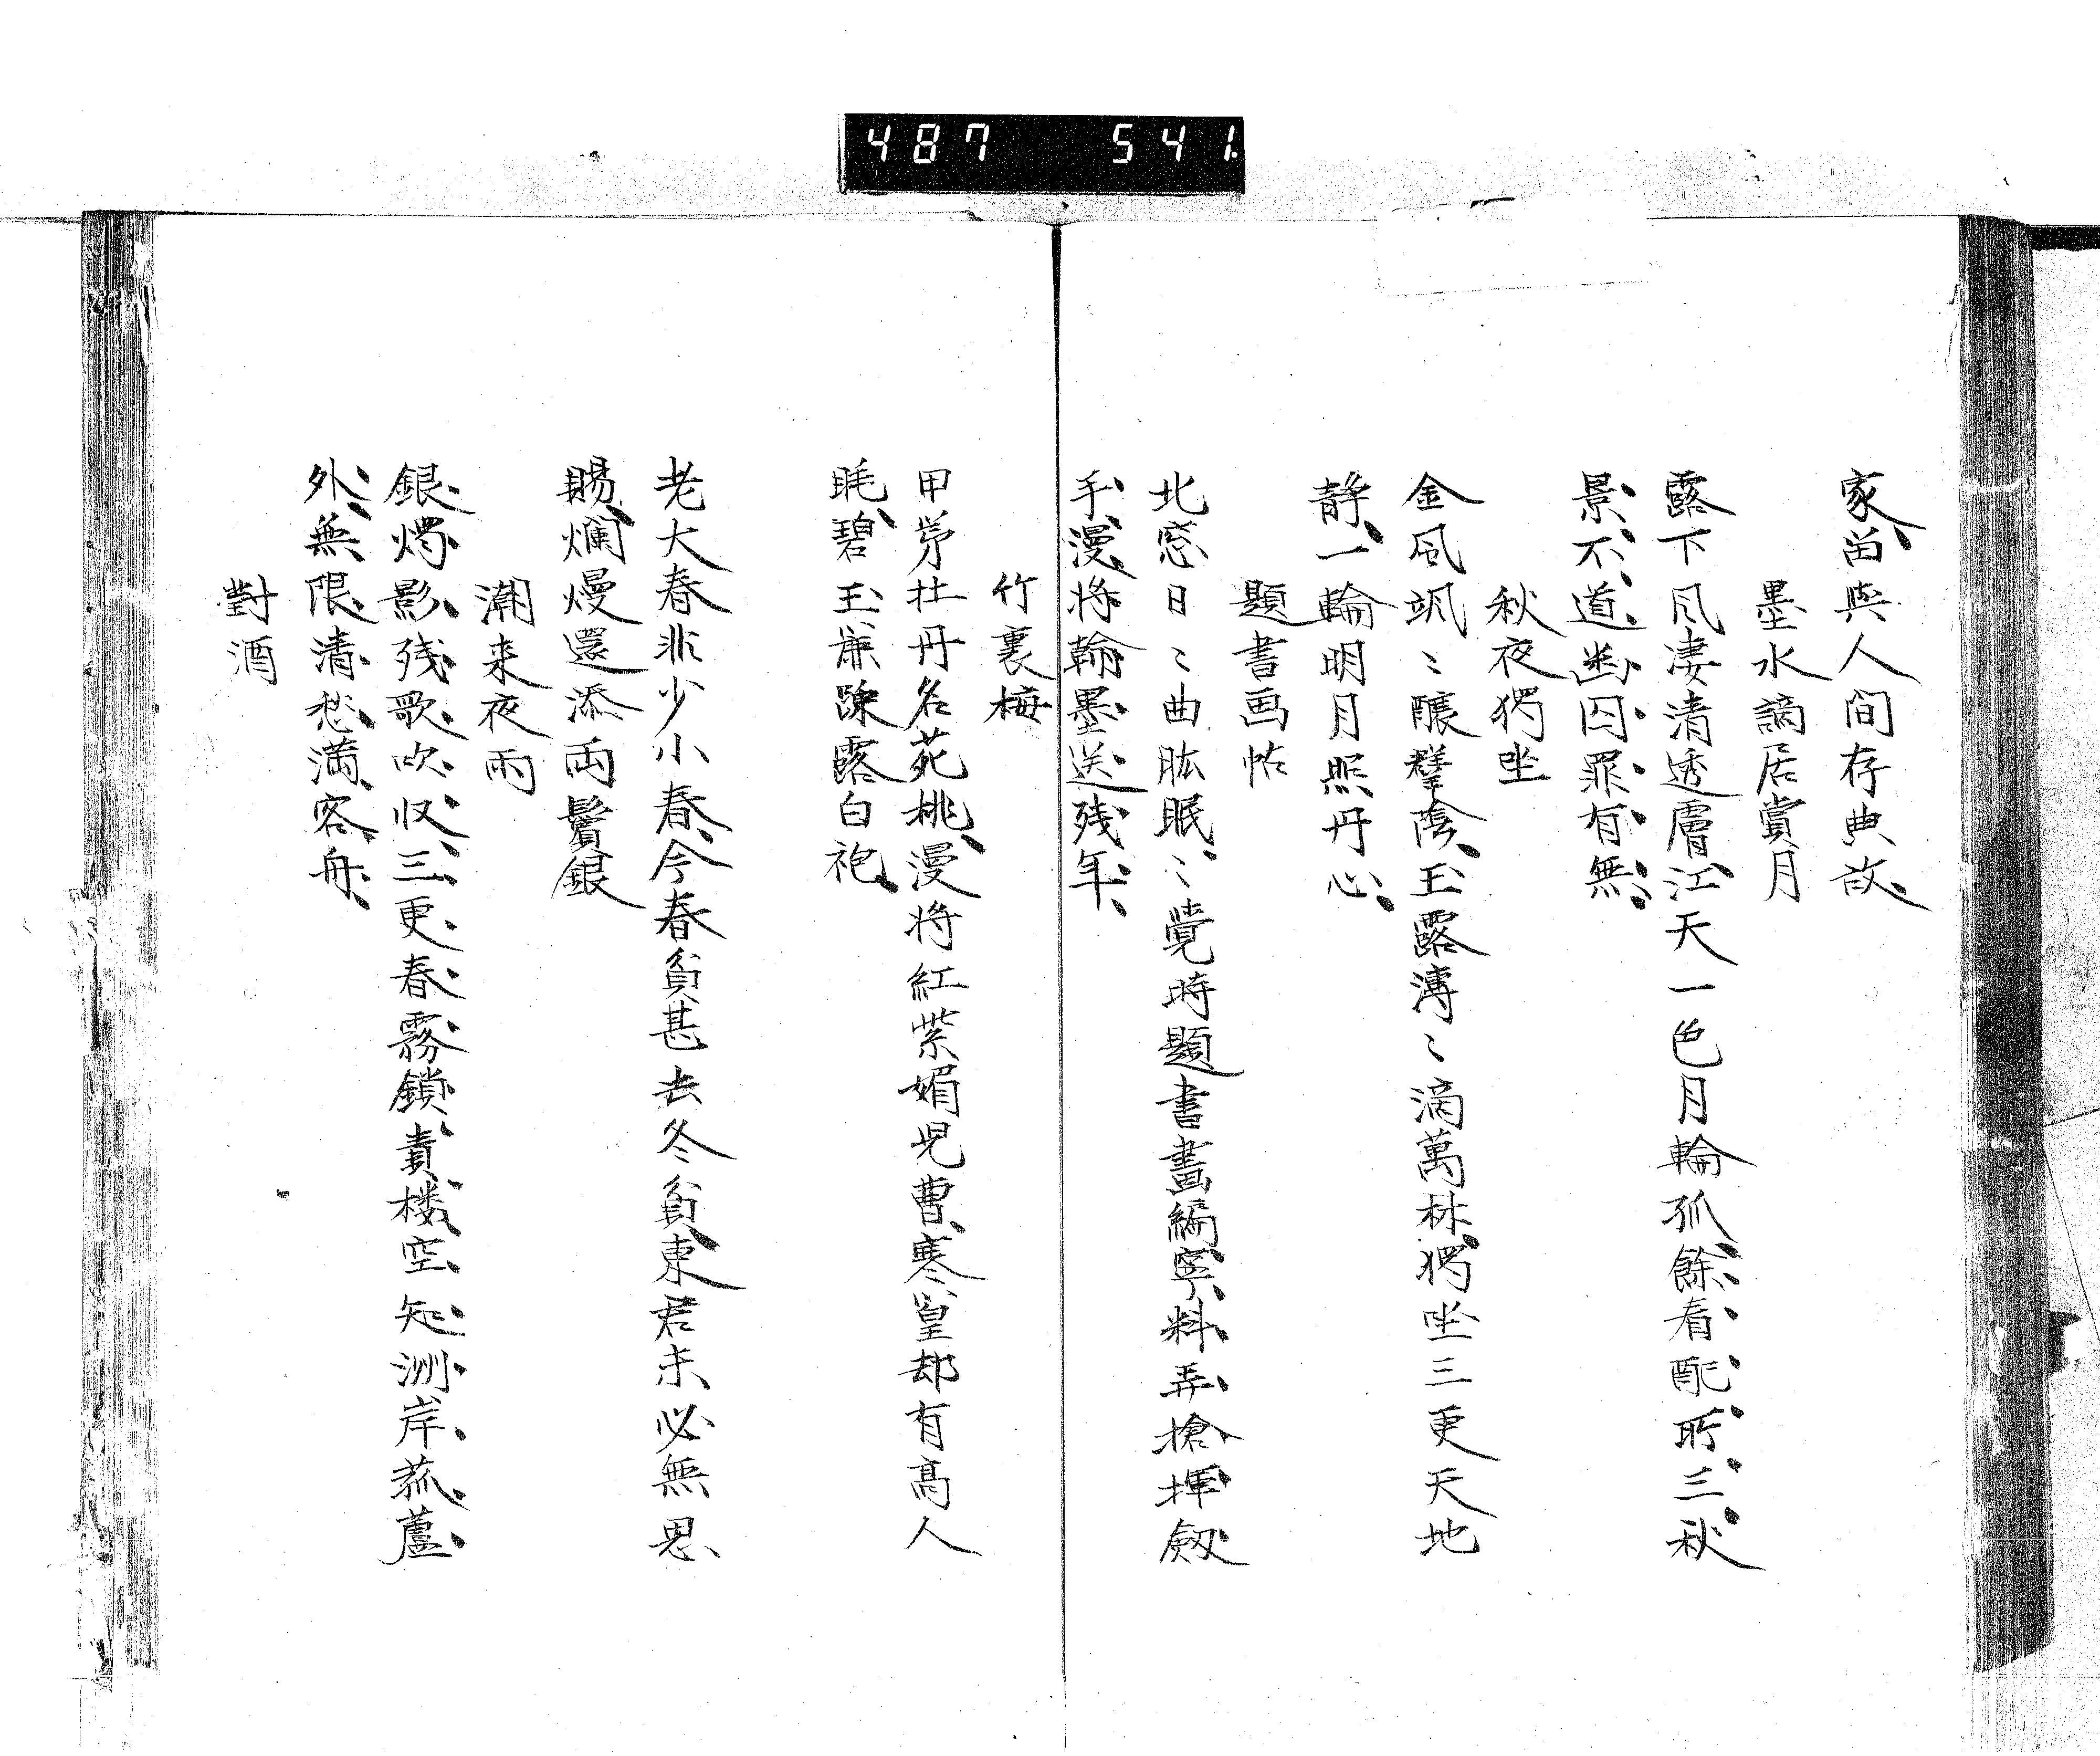 487 541.
家留與人間存典故
墨水謫居賞月
露下風凄清透膚江天一色月輪孤餘看配所三秋
景不道幽囚罪有無
秋夜獨坐
金風颯〻釀群陰玉露漙〻滴萬林獨坐三更天地
静一輪明月照丹心
題書画帖
北窓日〻曲肱眠〻覺時題書畫編寧料弄搶揮劔
手漫将翰墨送残年
竹裏梅
甲苐牡丹名苑桃漫将紅紫媚児曹寒篁却有髙人
眊碧玉簾踈露白袍
老大春非少小春今春貧甚去冬貧東君未必無恩
賜爛熳還添両鬢銀
潮来夜雨
銀燭影残歌吹収三更春霧鎖青楼空知洲岸菰蘆
外無限清愁満客舟
對酒